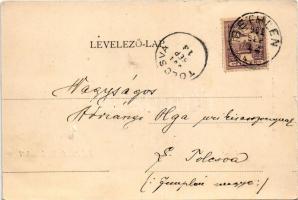 LEVELEZŐ-LAP
BETHLEN
TOLCSVA
SEP
14
Nagyságos
Adriányi Olga
Tolcsva
(: Zemplén megye :)